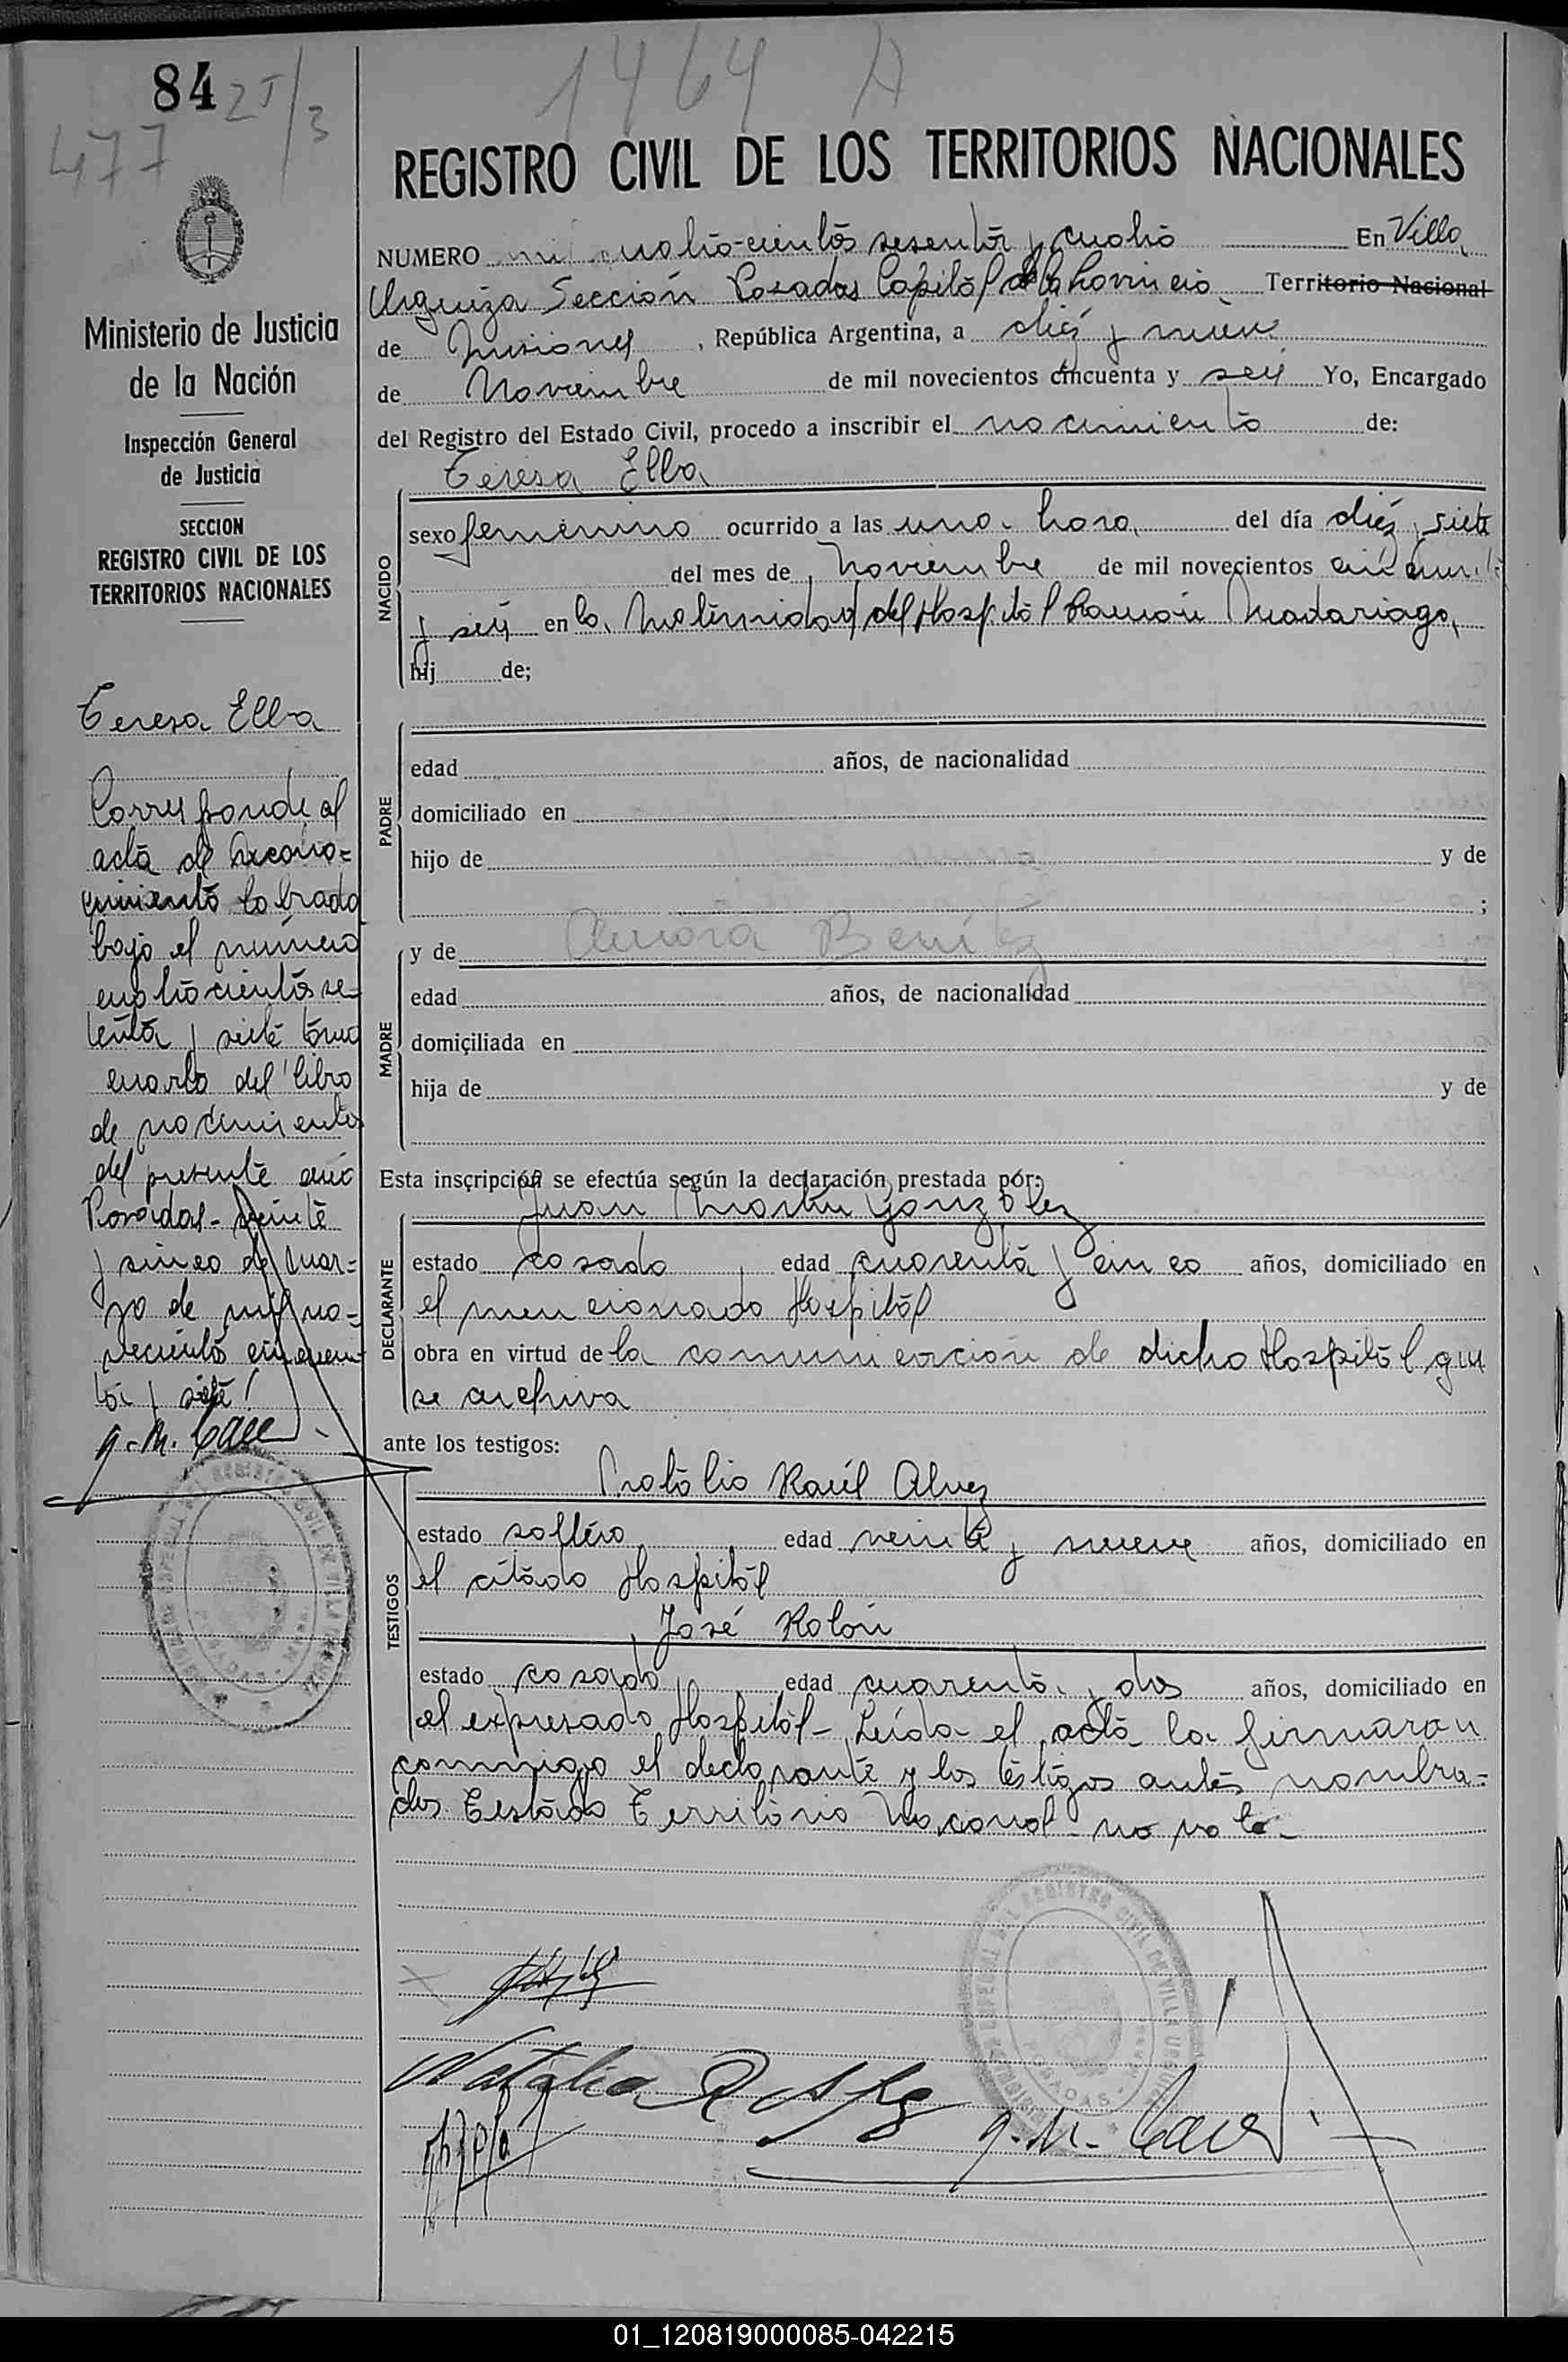 84
25/3
477
1464 A
REGISTRO CIVIL DE LOS TERRITORIOS NACIONALES
NUMERO mil cuatrocientos sesenta y cuatro En Villa
Urquiza Sección Posadas Capital de la Provincia Territorio Nacional
de Misiones, República Argentina, a diez y nueve
de Noviembre de mil novecientos cincuenta y seis Yo, Encargado
del Registro del Estado Civil, procedo a inscribir el nacimiento de:
Teresa Elba
NACIDO
sexo femenino ocurrido a las una hora del día diez y siete
del mes de Noviembre de mil novecientos cincuenta
y seis en la Maternidad del Hospital Ramón Madariaga,
hij de;
PADRE
edad años, de nacionalidad
domiciliado en
hijo de y de
;
MADRE
y de Aurora Benítez
edad años, de nacionalidad
domiciliada en
hija de y de
Esta inscripción se efectúa según la declaración prestada por:
Juan Martín González
DECLARANTE
estado casado edad cuarenta y cinco años, domiciliado en
el mencionado Hospital
obra en virtud de la comunicación de dicho Hospital que
se archiva
ante los testigos:
TESTIGOS
Natalio Raúl Alvez
estado soltero edad veinte y nueve años, domiciliado en
el citado Hospital
José Rolón
estado casado edad cuarenta y dos años, domiciliado en
el expresado Hospital - Leída el acta la firmaron
conmigo el declarante y los testigos antes nombra=
dos Testado Territorio Nacional - no vale -
Natalio R Alvez
Ministerio de Justicia
de la Nación
Inspección General
de Justicia
SECCION
REGISTRO CIVIL DE LOS
TERRITORIOS NACIONALES
Teresa Elba
Corresponde al
acta de recono=
cimiento labrada
bajo el número
cuatrocientos se-
tenta y siete tomo
cuarto del libro
de nacimientos
del presente año
Posadas - veinte
y cinco de mar=
zo de mil no=
vecientos cincuen
ta y siete
01_120819000085-042215